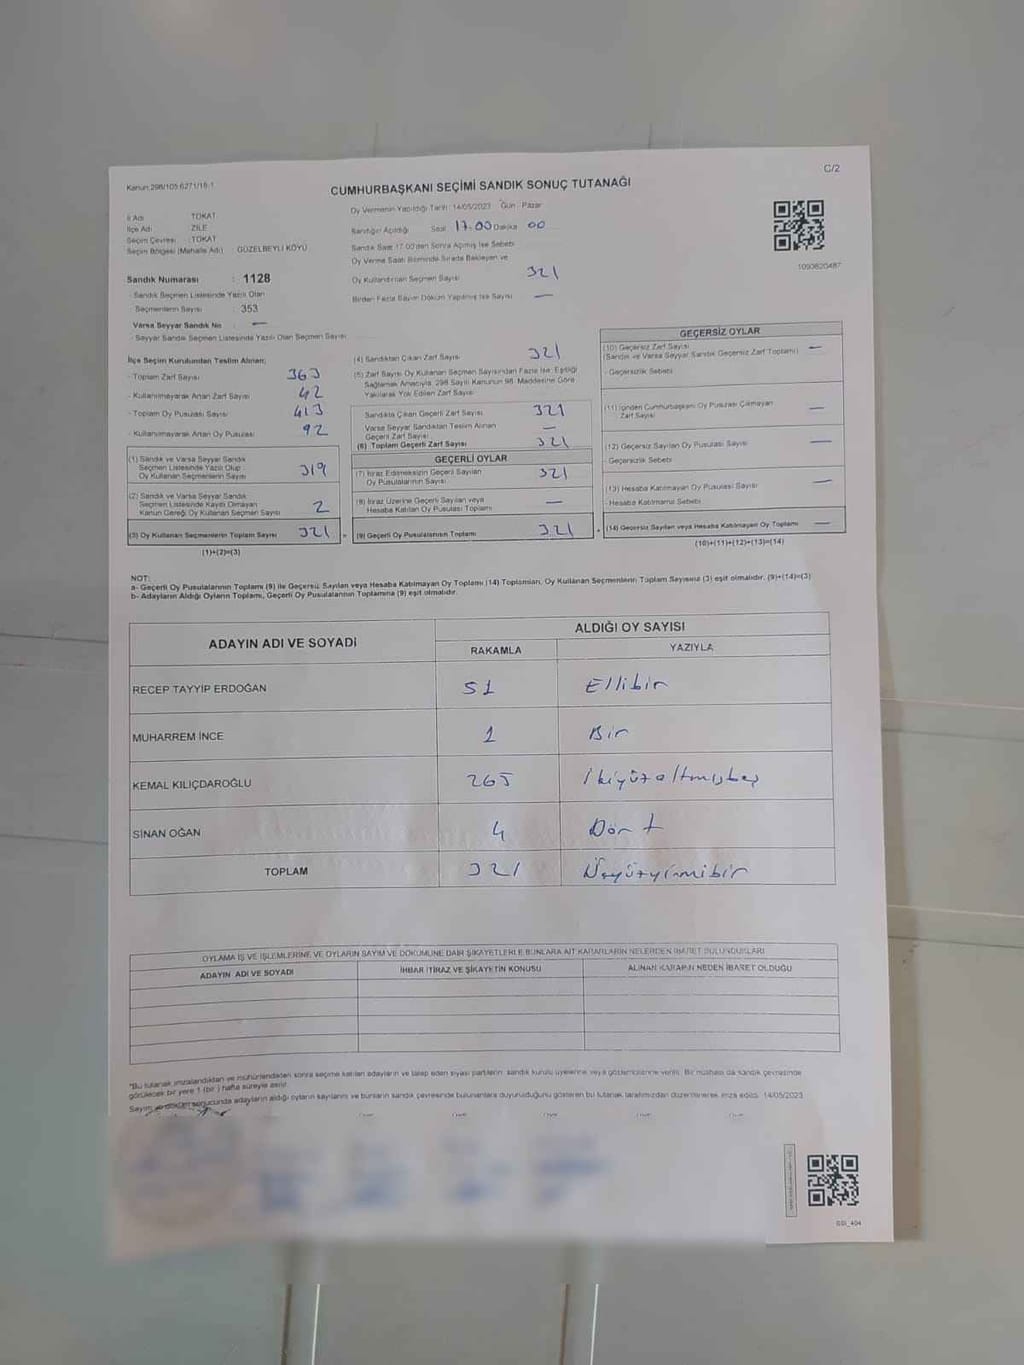 Kanun:298/105 6271/18-1
C/2
CUMHURBAŞKANI SEÇİMİ SANDIK SONUÇ TUTANAĞI
İl Adı TOKAT
İlçe Adı ZİLE
Seçim Çevresi : TOKAT
Seçim Bölgesi (Mahalle Adı) : GÜZELBEYLİ KÖYÜ
Sandık Numarası : 1128
Sandık Seçmen Listesinde Yazılı Olan
Seçmenlerin Sayısı : 353
Varsa Seyyar Sandık No : —
Seyyar Sandık Seçmen Listesinde Yazılı Olan Seçmen Sayısı
Oy Vermenin Yapıldığı Tarih : 14/05/2023 Gün : Pazar
Sandığın Açıldığı Saat 17.00 Dakika 00
Sandık Saat 17.00'den Sonra Açılmış İse Sebebi
Oy Verme Saati Bitiminde Sırada Bekleyen ve
Oy Kullandırılan Seçmen Sayısı 321
Birden Fazla Sayım Döküm Yapılmış İse Sayısı —
1093620487
İlçe Seçim Kurulundan Teslim Alınan;
- Toplam Zarf Sayısı 363
- Kullanılmayarak Artan Zarf Sayısı 42
- Toplam Oy Pusulası Sayısı 413
- Kullanılmayarak Artan Oy Pusulası 92
(1) Sandık ve Varsa Seyyar Sandık
Seçmen Listesinde Yazılı Olup
Oy Kullanan Seçmenlerin Sayısı 319
(2) Sandık ve Varsa Seyyar Sandık
Seçmen Listesinde Kayıtlı Olmayan
Kanun Gereği Oy Kullanan Seçmen Sayısı 2
(3) Oy Kullanan Seçmenlerin Toplam Sayısı 321
(1)+(2)=(3)
(4) Sandıktan Çıkan Zarf Sayısı 321
(5) Zarf Sayısı Oy Kullanan Seçmen Sayısından Fazla İse, Eşitliği
Sağlamak Amacıyla, 298 Sayılı Kanunun 98. Maddesine Göre
Yakılarak Yok Edilen Zarf Sayısı
Sandıkta Çıkan Geçerli Zarf Sayısı 321
Varsa Seyyar Sandıktan Teslim Alınan
Geçerli Zarf Sayısı —
(6) Toplam Geçerli Zarf Sayısı 321
GEÇERLİ OYLAR
(7) İtiraz Edilmeksizin Geçerli Sayılan
Oy Pusulalarının Sayısı 321
(8) İtiraz Üzerine Geçerli Sayılan veya
Hesaba Katılan Oy Pusulası Toplamı —
(9) Geçerli Oy Pusulalarının Toplamı 321
GEÇERSİZ OYLAR
(10) Geçersiz Zarf Sayısı
(Sandık ve Varsa Seyyar Sandık Geçersiz Zarf Toplamı) —
- Geçersizlik Sebebi
(11) İçinden Cumhurbaşkanı Oy Pusulası Çıkmayan
Zarf Sayısı —
(12) Geçersiz Sayılan Oy Pusulası Sayısı —
- Geçersizlik Sebebi
(13) Hesaba Katılmayan Oy Pusulası Sayısı —
- Hesaba Katılmama Sebebi
(14) Geçersiz Sayılan veya Hesaba Katılmayan Oy Toplamı —
(10)+(11)+(12)+(13)=(14)
NOT:
a- Geçerli Oy Pusulalarının Toplamı (9) ile Geçersiz Sayılan veya Hesaba Katılmayan Oy Toplamı (14) Toplamları, Oy Kullanan Seçmenlerin Toplam Sayısına (3) eşit olmalıdır. (9)+(14)=(3)
b- Adayların Aldığı Oyların Toplamı, Geçerli Oy Pusulalarının Toplamına (9) eşit olmalıdır.
ADAYIN ADI VE SOYADI ALDIĞI OY SAYISI
RAKAMLA YAZIYLA
RECEP TAYYİP ERDOĞAN 51 Ellibir
MUHARREM İNCE 1 Bir
KEMAL KILIÇDAROĞLU 265 İkiyüzaltmışbeş
SİNAN OĞAN 4 Dört
TOPLAM 321 Üçyüzyirmibir
OYLAMA İŞ VE İŞLEMLERİNE VE OYLARIN SAYIM VE DÖKÜMÜNE DAİR ŞİKAYETLERLE BUNLARA AİT KARARLARIN NELERDEN İBARET BULUNDUKLARI
ADAYIN ADI VE SOYADI İHBAR İTİRAZ VE ŞİKAYETİN KONUSU ALINAN KARARIN NEDEN İBARET OLDUĞU
*Bu tutanak imzalandıktan ve mühürlendikten sonra seçime katılan adayların ve talep eden siyasi partilerin sandık kurulu üyelerine veya gözlemcilerine verilir. Bir nüshası da sandık çevresinde
görülecek bir yere 1 (bir ) hafta süreyle asılır.
Sayım ve döküm sonucunda adayların aldığı oyların sayılarını ve bunların sandık çevresinde bulunanlara duyurulduğunu gösteren bu tutanak tarafımızdan düzenlenerek imza edildi. 14/05/2023